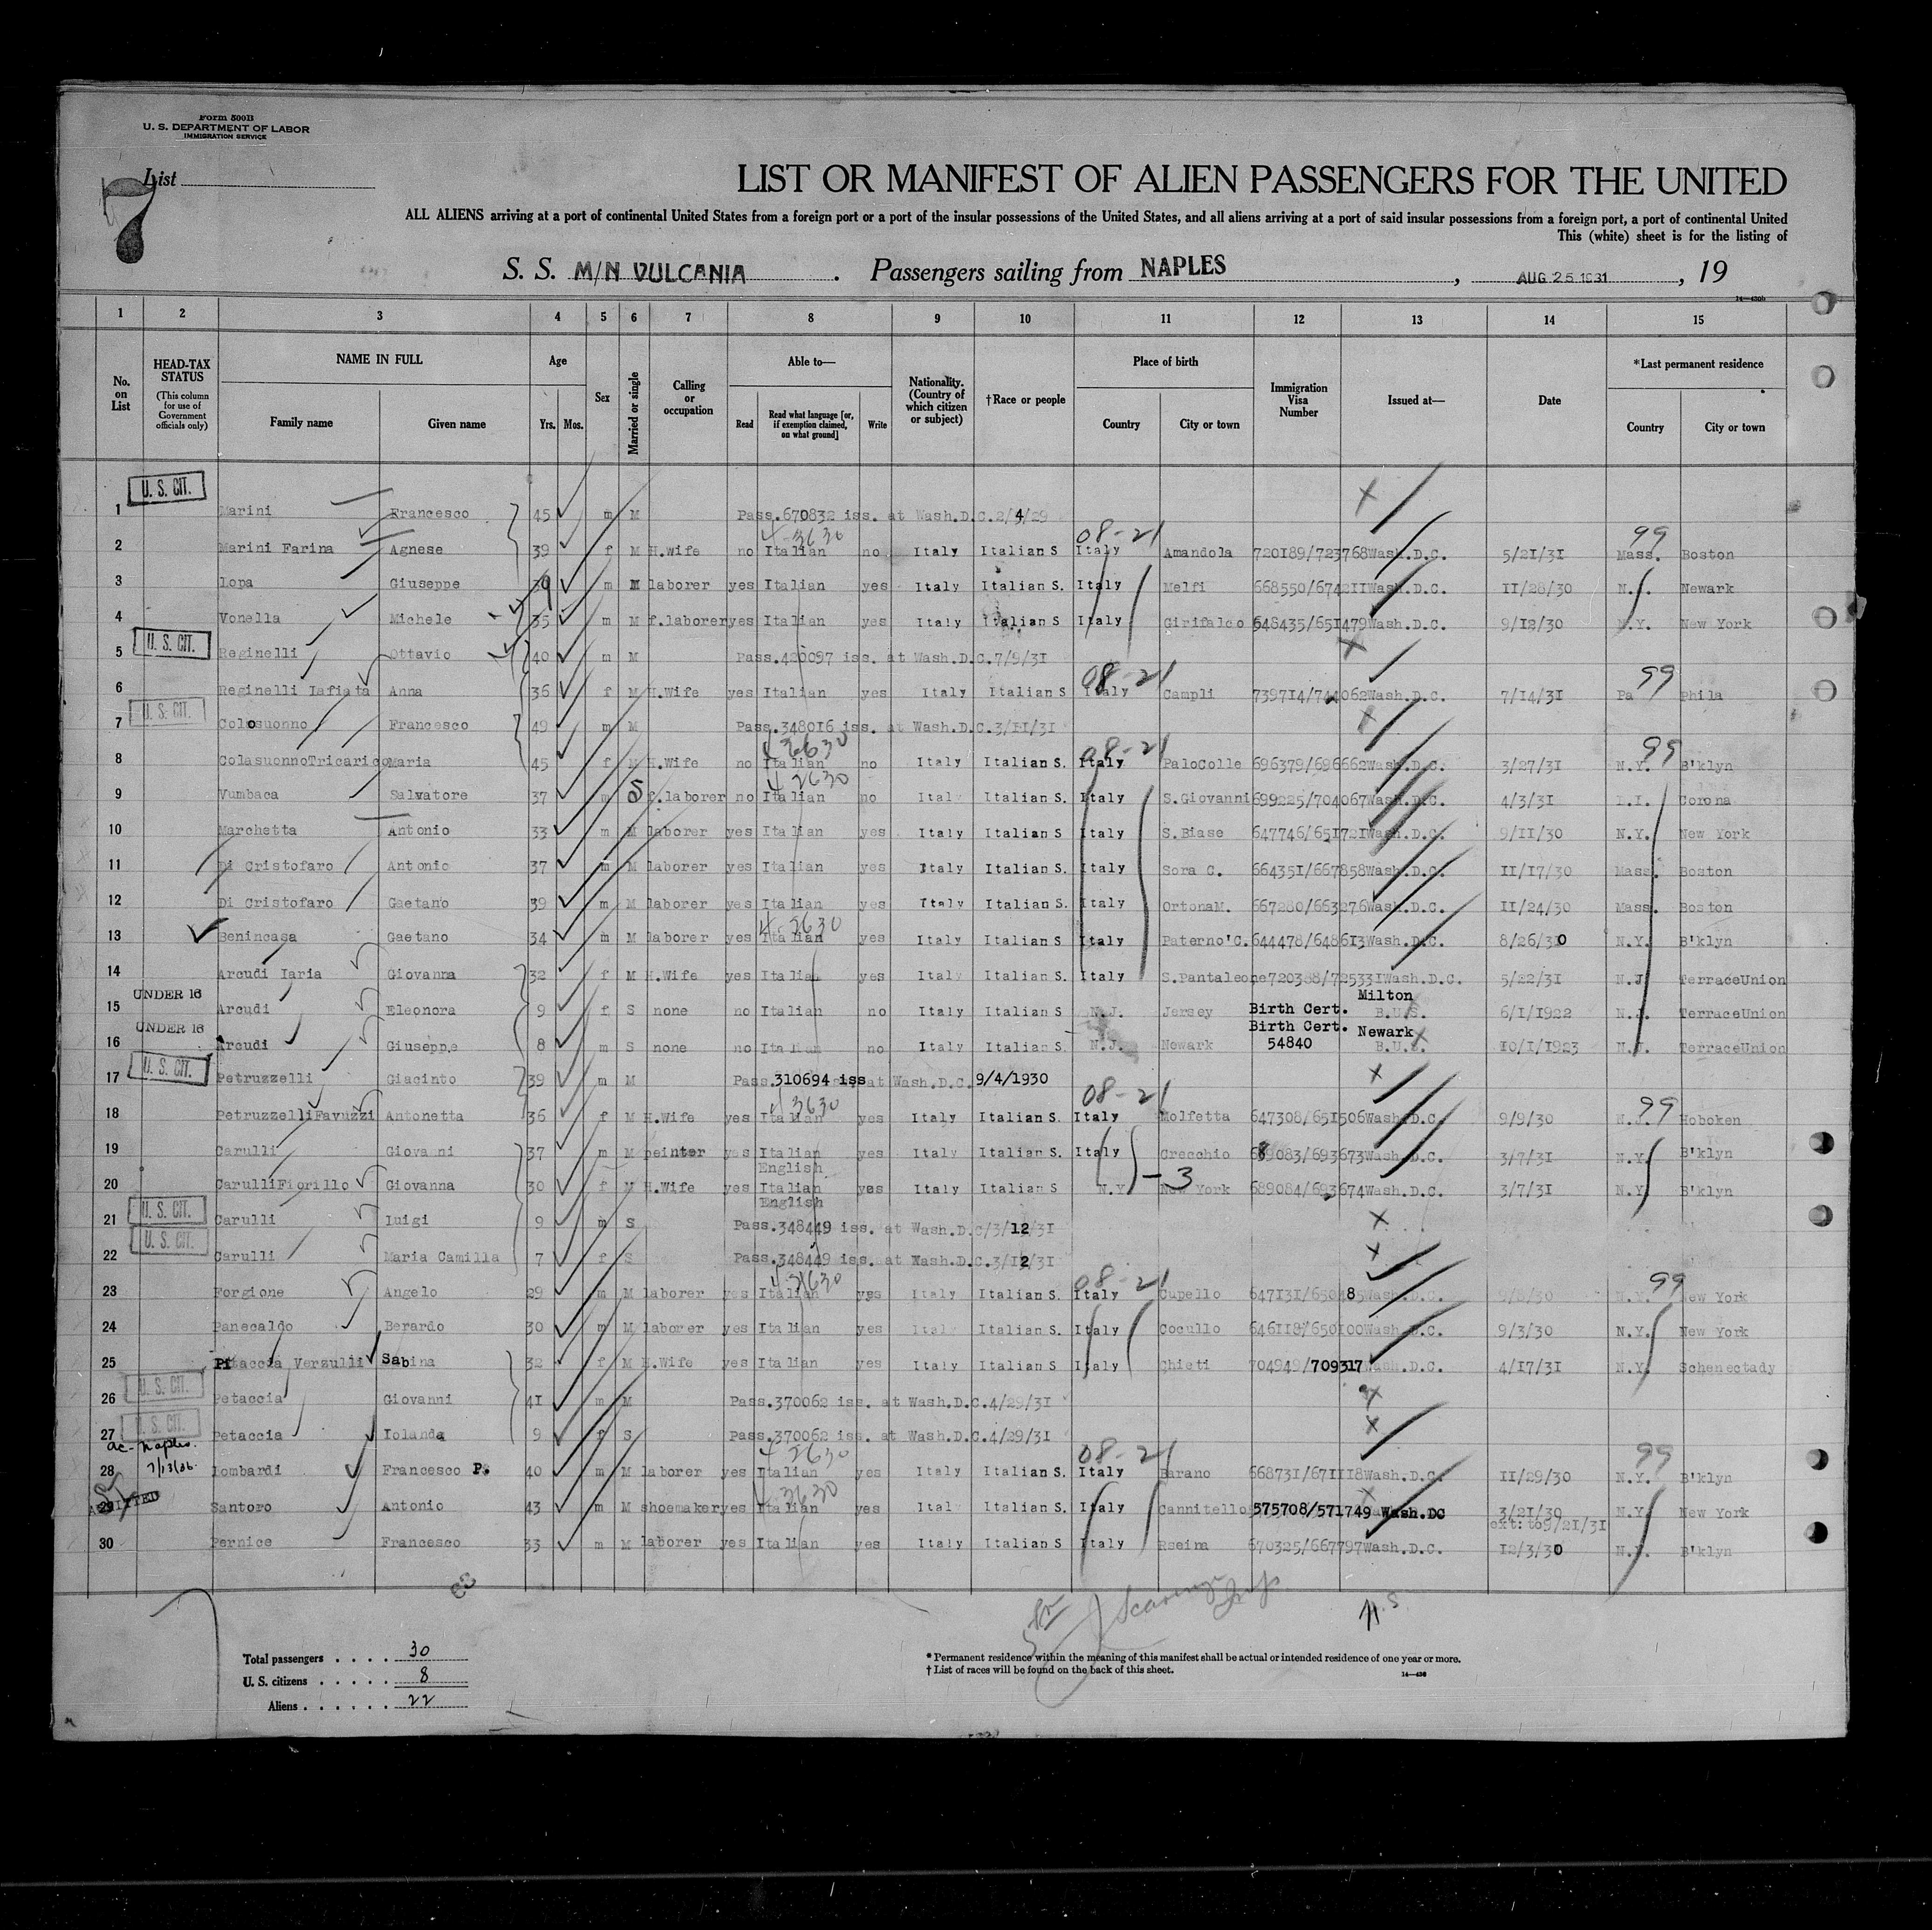 Form 500B
U. S. DEPARTMENT OF LABOR
IMMIGRATION SERVICE
List
7
LIST OR MANIFEST OF ALIEN PASSENGERS FOR THE UNITED
ALL ALIENS arriving at a port of continental United States from a foreign port or a port of the insular possessions of the United States, and all aliens arriving at a port of said insular possessions from a foreign port, a port of continental United
This (white) sheet is for the listing of
S. S. M/N VULCANIA. Passengers sailing from NAPLES, AUG 25 1931, 19
14—430b
1 2 3 4 5 6 7 8 9 10 11 12 13 14 15
No. on List
HEAD-TAX STATUS (This column for use of Government officials only)
NAME IN FULL
Family name Given name
Age
Yrs. Mos.
Sex
Married or single
Calling or occupation
Able to—
Read Read what language [or, if exemption claimed, on what ground] Write
Nationality. (Country of which citizen or subject)
†Race or people
Place of birth
Country City or town
Immigration Visa Number
Issued at—
Date
*Last permanent residence
Country City or town
U. S. CIT.
1 Marini Francesco 45 m M Pass.670832 iss. at Wash.D.C.2/4/29
4-3630 08-21 99
2 Marini Farina Agnese 39 f M H.wife no Italian no Italy Italian S Italy Amandola 720189/723768 Wash.D.C. 5/21/31 Mass. Boston
3 Lopa Giuseppe m M laborer yes Italian yes Italy Italian S. Italy Melfi 668550/674211 Wash.D.C. 11/28/30 N.J. Newark
4 Vonella Michele 35 m M f.laborer yes Italian yes Italy Italian S Italy Girifalco 648435/651479 Wash.D.C. 9/12/30 N.Y. New York
U. S. CIT.
5 Reginelli Ottavio 40 m M Pass.420097 iss. at Wash.D.C.7/9/31
08-21 99
6 Reginelli Lafiata Anna 36 f M H.Wife yes Italian yes Italy Italian S Italy Campli 739714/744062 Wash.D.C. 7/14/31 Pa Phila
U. S. CIT.
7 Colosuonno Francesco 49 m M Pass.348016 iss. at Wash.D.C.3/11/31
43630 08-21 99
8 ColasuonnoTricarico Maria 45 f M H.Wife no Italian no Italy Italian S. Italy PaloColle 696379/696662 Wash.D.C. 3/27/31 N.Y. B'klyn
4 2630
9 Vumbaca Salvatore 37 m S f.laborer no Italian no Italy Italian S. Italy S.Giovanni 699225/704067 Wash.D.C. 4/3/31 L.I. Corona
10 Marchetta Antonio 33 m M laborer yes Italian yes Italy Italian S Italy S.Biase 647746/651721 Wash.D.C. 9/11/30 N.Y. New York
11 Di Cristofaro Antonio 37 m M laborer yes Italian yes Italy Italian S. Italy Sora C. 664351/667858 Wash.D.C. 11/17/30 Mass. Boston
12 Di Cristofaro Gaetano 39 m M laborer yes Italian yes Italy Italian S. Italy OrtonaM. 667280/663276 Wash.D.C. 11/24/30 Mass. Boston
4-2630
13 Benincasa Gaetano 34 m M laborer yes Italian yes Italy Italian S Italy Paterno'C. 644478/648613 Wash.D.C. 8/26/30 N.Y. B'klyn
14 Arcudi Iaria Giovanna 32 f M H.Wife yes Italian yes Italy Italian S. Italy S.Pantaleone 720388/725331 Wash.D.C. 5/22/31 N.J TerraceUnion
UNDER 16 Milton
15 Arcudi Eleonora 9 f S none no Italian no Italy Italian S N.J. Jersey Birth Cert. B.U.S. 6/1/1922 N.J. TerraceUnion
UNDER 16 Birth Cert. Newark
16 Arcudi Giuseppe 8 m S none no Italian no Italy Italian S. N.J. Newark 54840 B.U.S. 10/1/1923 N.J. TerraceUnion
U. S. CIT.
17 Petruzzelli Giacinto 39 m M Pass.310694 iss at Wash.D.C.9/4/1930
4 3630 08-21 99
18 PetruzzelliFavuzzi Antonetta 36 f M H.Wife yes Italian yes Italy Italian S. Italy Molfetta 647308/651506 Wash.D.C. 9/9/30 N.J. Hoboken
19 Carulli Giovanni 37 m M peinter yes Italian English yes Italy Italian S. Italy Crecchio 689083/693673 Wash.D.C. 3/7/31 N.Y. B'klyn
-3
20 CarulliFiorillo Giovanna 30 f M H.Wife yes Italian English yes Italy Italian S N.Y New York 689084/693674 Wash.D.C. 3/7/31 N.Y. B'klyn
U. S. CIT.
21 Carulli Luigi 9 m S Pass.348449 iss. at Wash.D.C/3/12/31
U. S. CIT.
22 Carulli Maria Camilla 7 f S Pass.348449 iss. at Wash.D.C.3/12/31
08-21 99
23 Forgione Angelo 29 m M laborer yes Italian yes Italy Italian S. Italy Cupello Wash.D.C. 9/8/30 N.Y. New York
24 Panecaldo Berardo 30 m M laborer yes Italian yes Italy Italian S. Italy Cocullo 646118/650100 Wash.D.C. 9/3/30 N.Y. New York
25 Petaccia Verzulli Sabina 32 f M H.Wife yes Italian yes Italy Italian S Italy Chieti 704949/709317 Wash.D.C. 4/17/31 N.Y. Schenectady
U. S. CIT.
26 Petaccia Giovanni 41 m M Pass.370062 iss. at Wash.D.C.4/29/31
U. S. CIT.
27 Petaccia Iolanda 9 f S Pass.370062 iss. at Wash.D.C.4/29/31
ac- Naples.
4 2630 08-21 99
28 Lombardi Francesco P. 40 m M laborer yes Italian yes Italy Italian S. Italy Barano 668731/671118 Wash.D.C. 11/29/30 N.Y. B'klyn
ADMITTED
4 3630
29 Santoro Antonio 43 m M shoemaker yes Italian yes Italy Italian S. Italy Cannitello 575708/571749 Wash.DC 3/21/30 N.Y. New York
ext: to9/21/31
30 Pernice Francesco 33 m M laborer yes Italian yes Italy Italian S Italy Rseina 670325/667797 Wash.D.C. 12/3/30 N.Y. B'klyn
Total passengers . . . . 30
U. S. citizens . . . . . 8
Aliens . . . . . . 22
* Permanent residence within the meaning of this manifest shall be actual or intended residence of one year or more.
† List of races will be found on the back of this sheet.
14—430